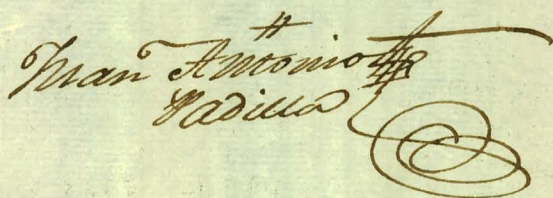 Juan Antonio
Padilla